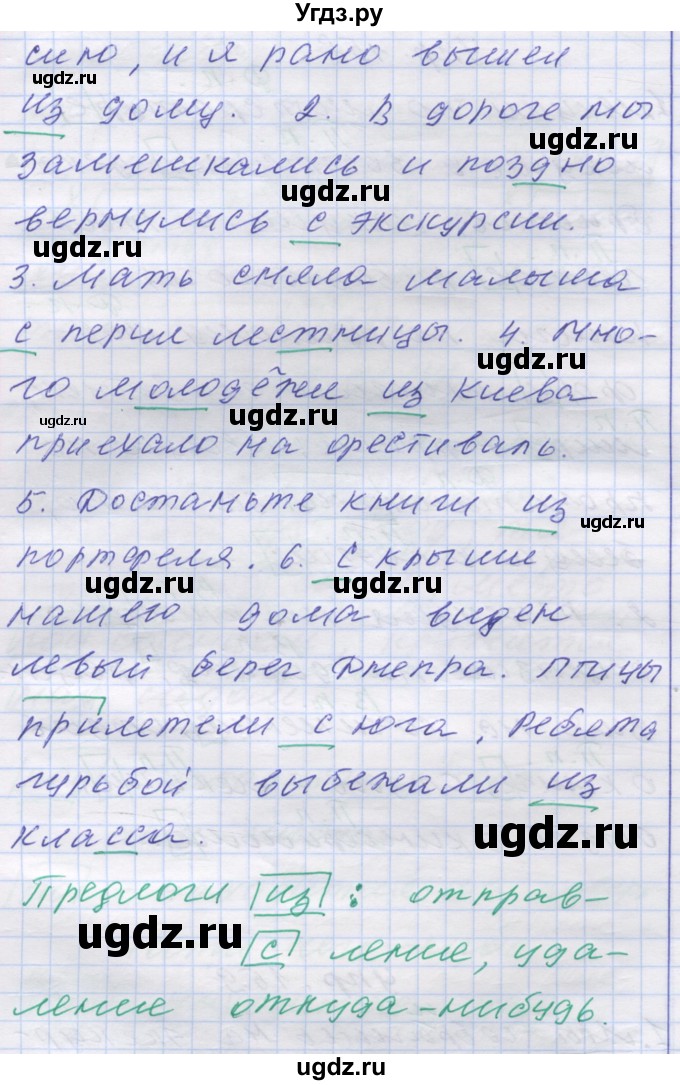 Угдз.ру
сило, и я рано вышел
ugdz.ru ugdz.ru
из дому. 2. В дороге мы
ugdz.ru
замешкались и поздно
ugdz.ru
вернулись с экскурсии.
ugdz.ru
3. Мать сняла малыша
с перил лестницы. 4. Мно-
ugdz.ru
го молодёжи из Киева
ugdz.ru
приехало на фестиваль.
5. Достаньте книги из
ugdz.ru
портфеля. 6. С крыши
ugdz.ru ugdz.ru
нашего дома виден
левый берег Днепра. Птицы
прилетели с юга, Ребята
гурьбой выбежали из
класса.
ugdz.ru
Предлоги из : отправ-
ugdz.ru
с ление, уда-
ление откуда-нибудь.
ugdz.ru